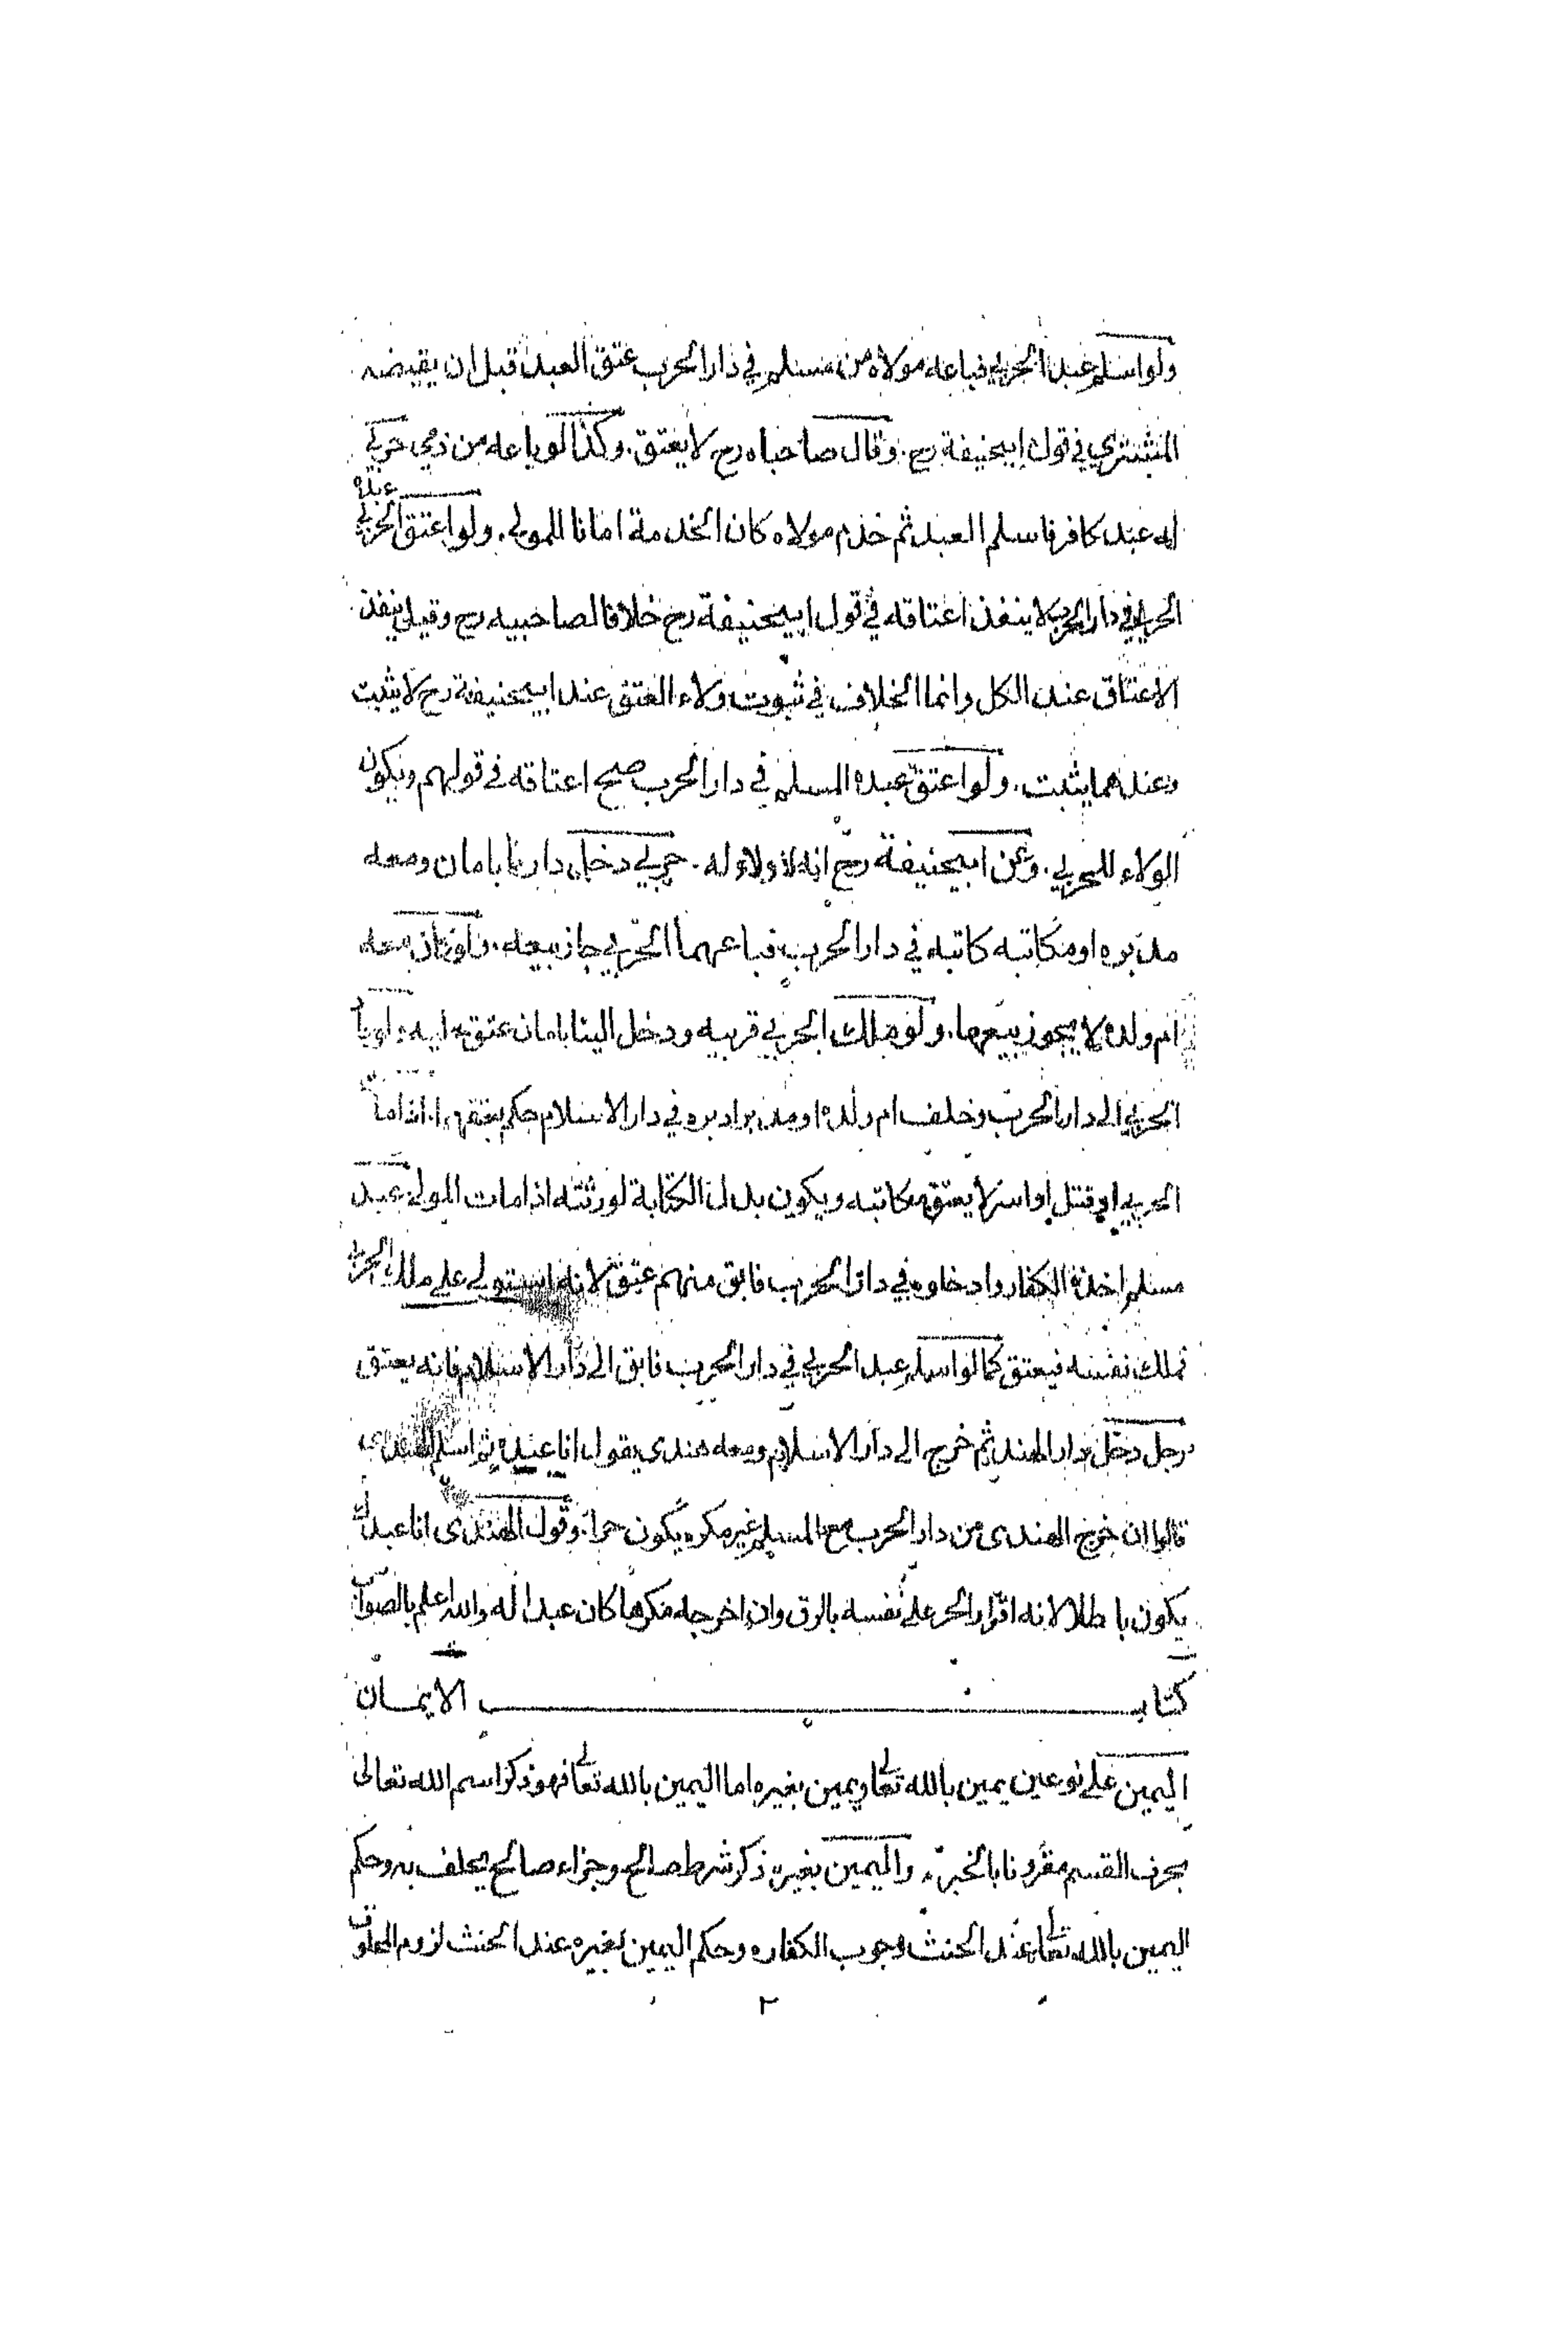 ولو اسلم عبد الحربي فباعه مولاه من مسلم في دار الحرب عتق العبد قبل ان يقبضه
المشتري في قول ابيحنيفة رح . وقال صاحباه رح لا يعتق . وكذا لو باعه من ذمي حربي
له عبد كافر فاسلم العبد ثم خدم مولاه كان الخدمة امانا للمولى . ولو اعتق الحربي عبده
الحربي في دار الحرب لا ينفذ اعتاقه في قول ابيحنيفة رح خلافا لصاحبيه رح وقيل ينفذ
الاعتاق عند الكل وانما الخلاف في ثبوت ولاء العتق عند ابيحنيفة رح لا يثبت
وعندهما يثبت . ولو اعتق عبده المسلم في دار الحرب صح اعتاقه في قولهم ويكون
الولاء للحربي . وعن ابيحنيفة رح انه لا ولاء له . حربي دخل دارنا بامان ومعه
مدبره او مكاتبه كاتبه في دار الحرب فباعهما الحربي جاز بيعه . ولو كان معه
ام ولده لا يجوز بيعها . ولو ملك الحربي قريبه ودخل الينا بامان عتق عليه
الحربي الى دار الحرب وخلف ام ولده او مدبرا دبره في دار الاسلام حكم بعتقهما . اذا مات
الحربي او قتل او اسر لا يعتق مكاتبه ويكون بدل الكتابة لورثته اذا مات المولى عبد
مسلم اخذه الكفار وادخلوه في دار الحرب فابق منهم عتق لانه استولى على ملك الحربي
فملك نفسه فيعتق كما لو اسلم عبد الحربي في دار الحرب فابق الى دار الاسلام فانه يعتق
رجل دخل دار الهند ثم خرج الى دار الاسلام ومعه هندى يقول انا عبده ثم اسلم الهندى
قالوا ان خرج الهندى من دار الحرب مع المسلم غير مكره يكون حرا . وقول الهندى انا عبدك
يكون باطلا لانه اقرار الحر على نفسه بالرق وان اخرجه مكرها كان عبدا له والله اعلم بالصواب
كتاب الايمان
اليمين على نوعين يمين بالله تعالى ويمين بغيره اما اليمين بالله تعالى فهو ذكر اسم الله تعالى
بحرف القسم مقرونا بالخبر . واليمين بغيره ذكر شرط صالح وجزاء صالح يحلف به وحكم
اليمين بالله تعالى عند الحنث وجوب الكفاره وحكم اليمين بغيره عند الحنث لزوم المحلوف
٢